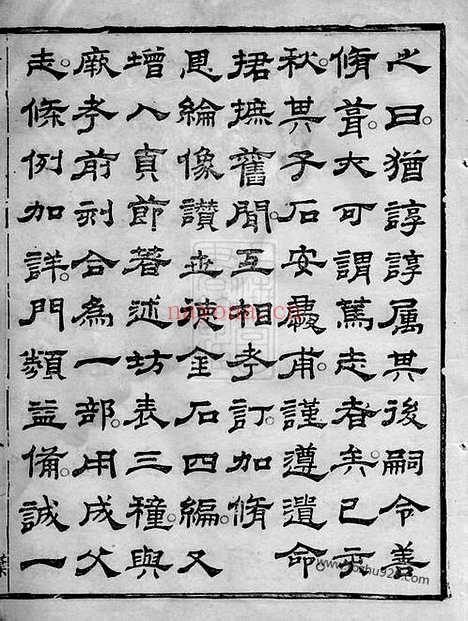 之日猶諄諄屬其後嗣令善
脩葺大可謂篤志者矣己亥
秋其子石安甫謹遵遺命
捃摭舊聞互相考訂加脩
恩綸像讃世德金石四編又
增入貞節著述坊表三種與
厥考前刻合為一部用成父
志條例加詳門類益備誠一
nayona.cn